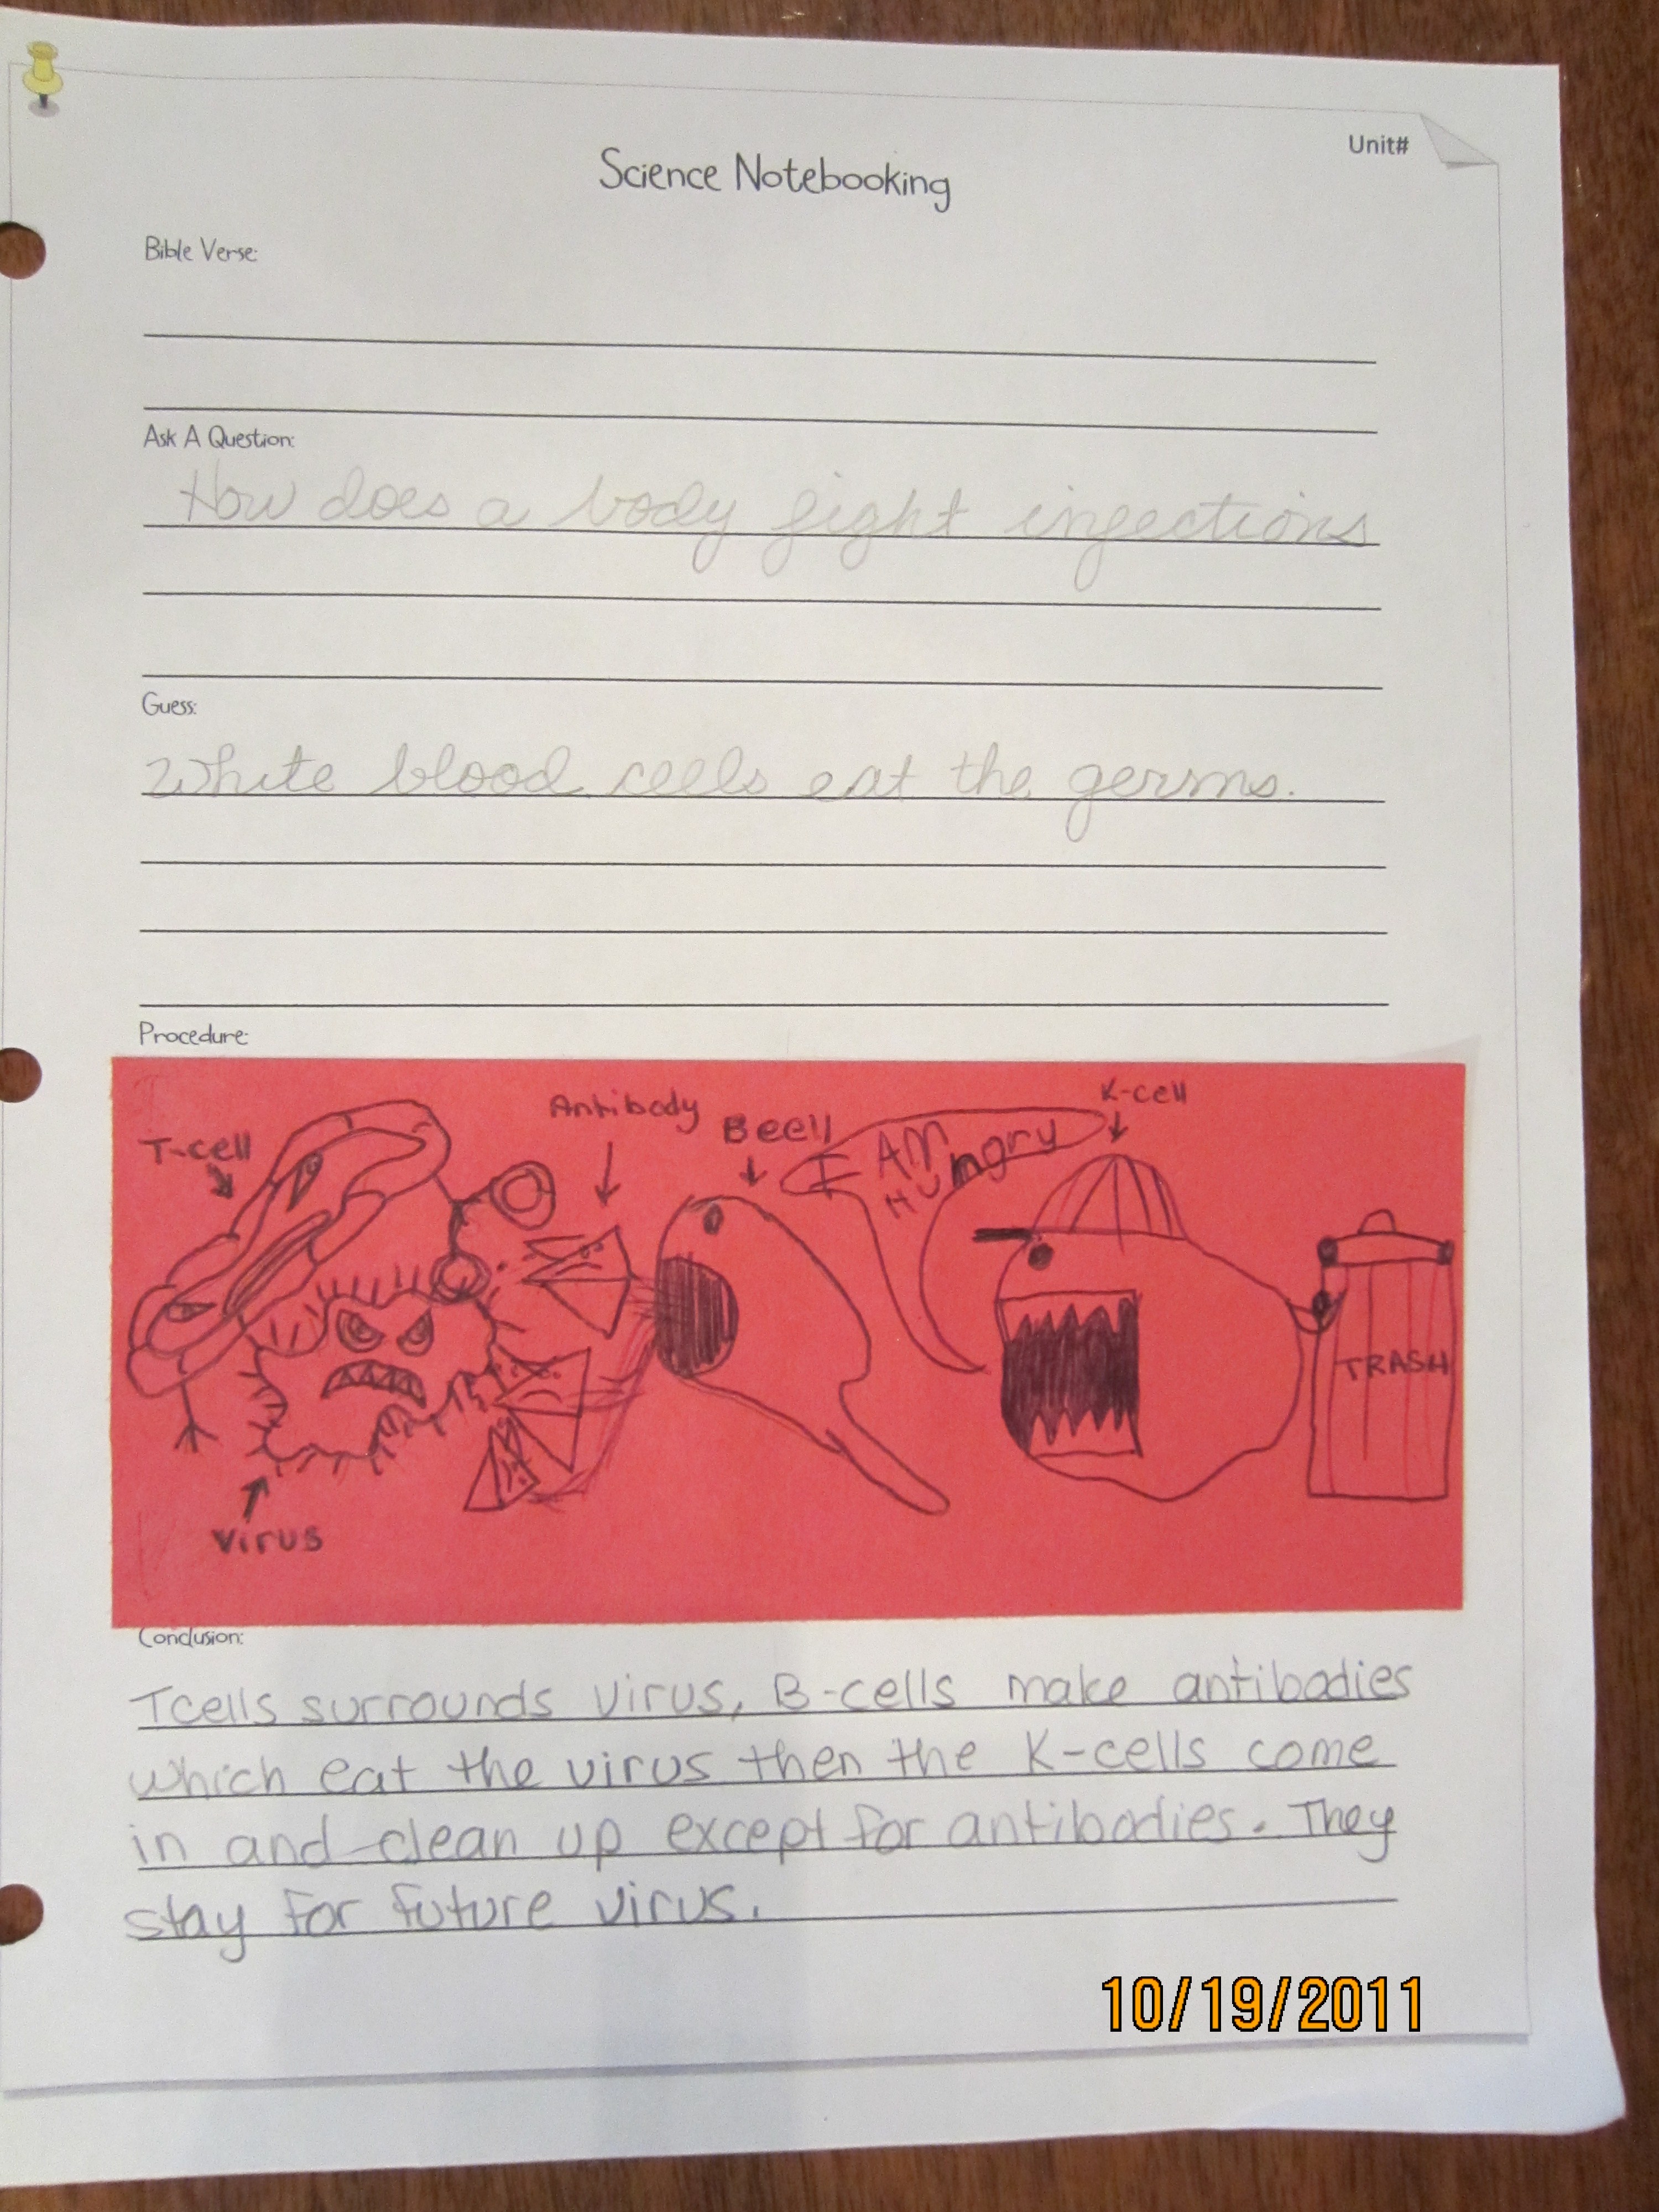 Unit#
Science Notebooking
Bible Verse:
Ask A Question:
How does a body fight infections
Guess:
White blood cells eat the germs.
Procedure:
T-cell
Antibody
Bcell
I AM
HUngry
K-cell
TRASH
Virus
Conclusion:
Tcells surrounds virus, B-cells make antibodies
which eat the virus then the K-cells come
in and clean up except for antibodies. They
stay for future virus.
10/19/2011